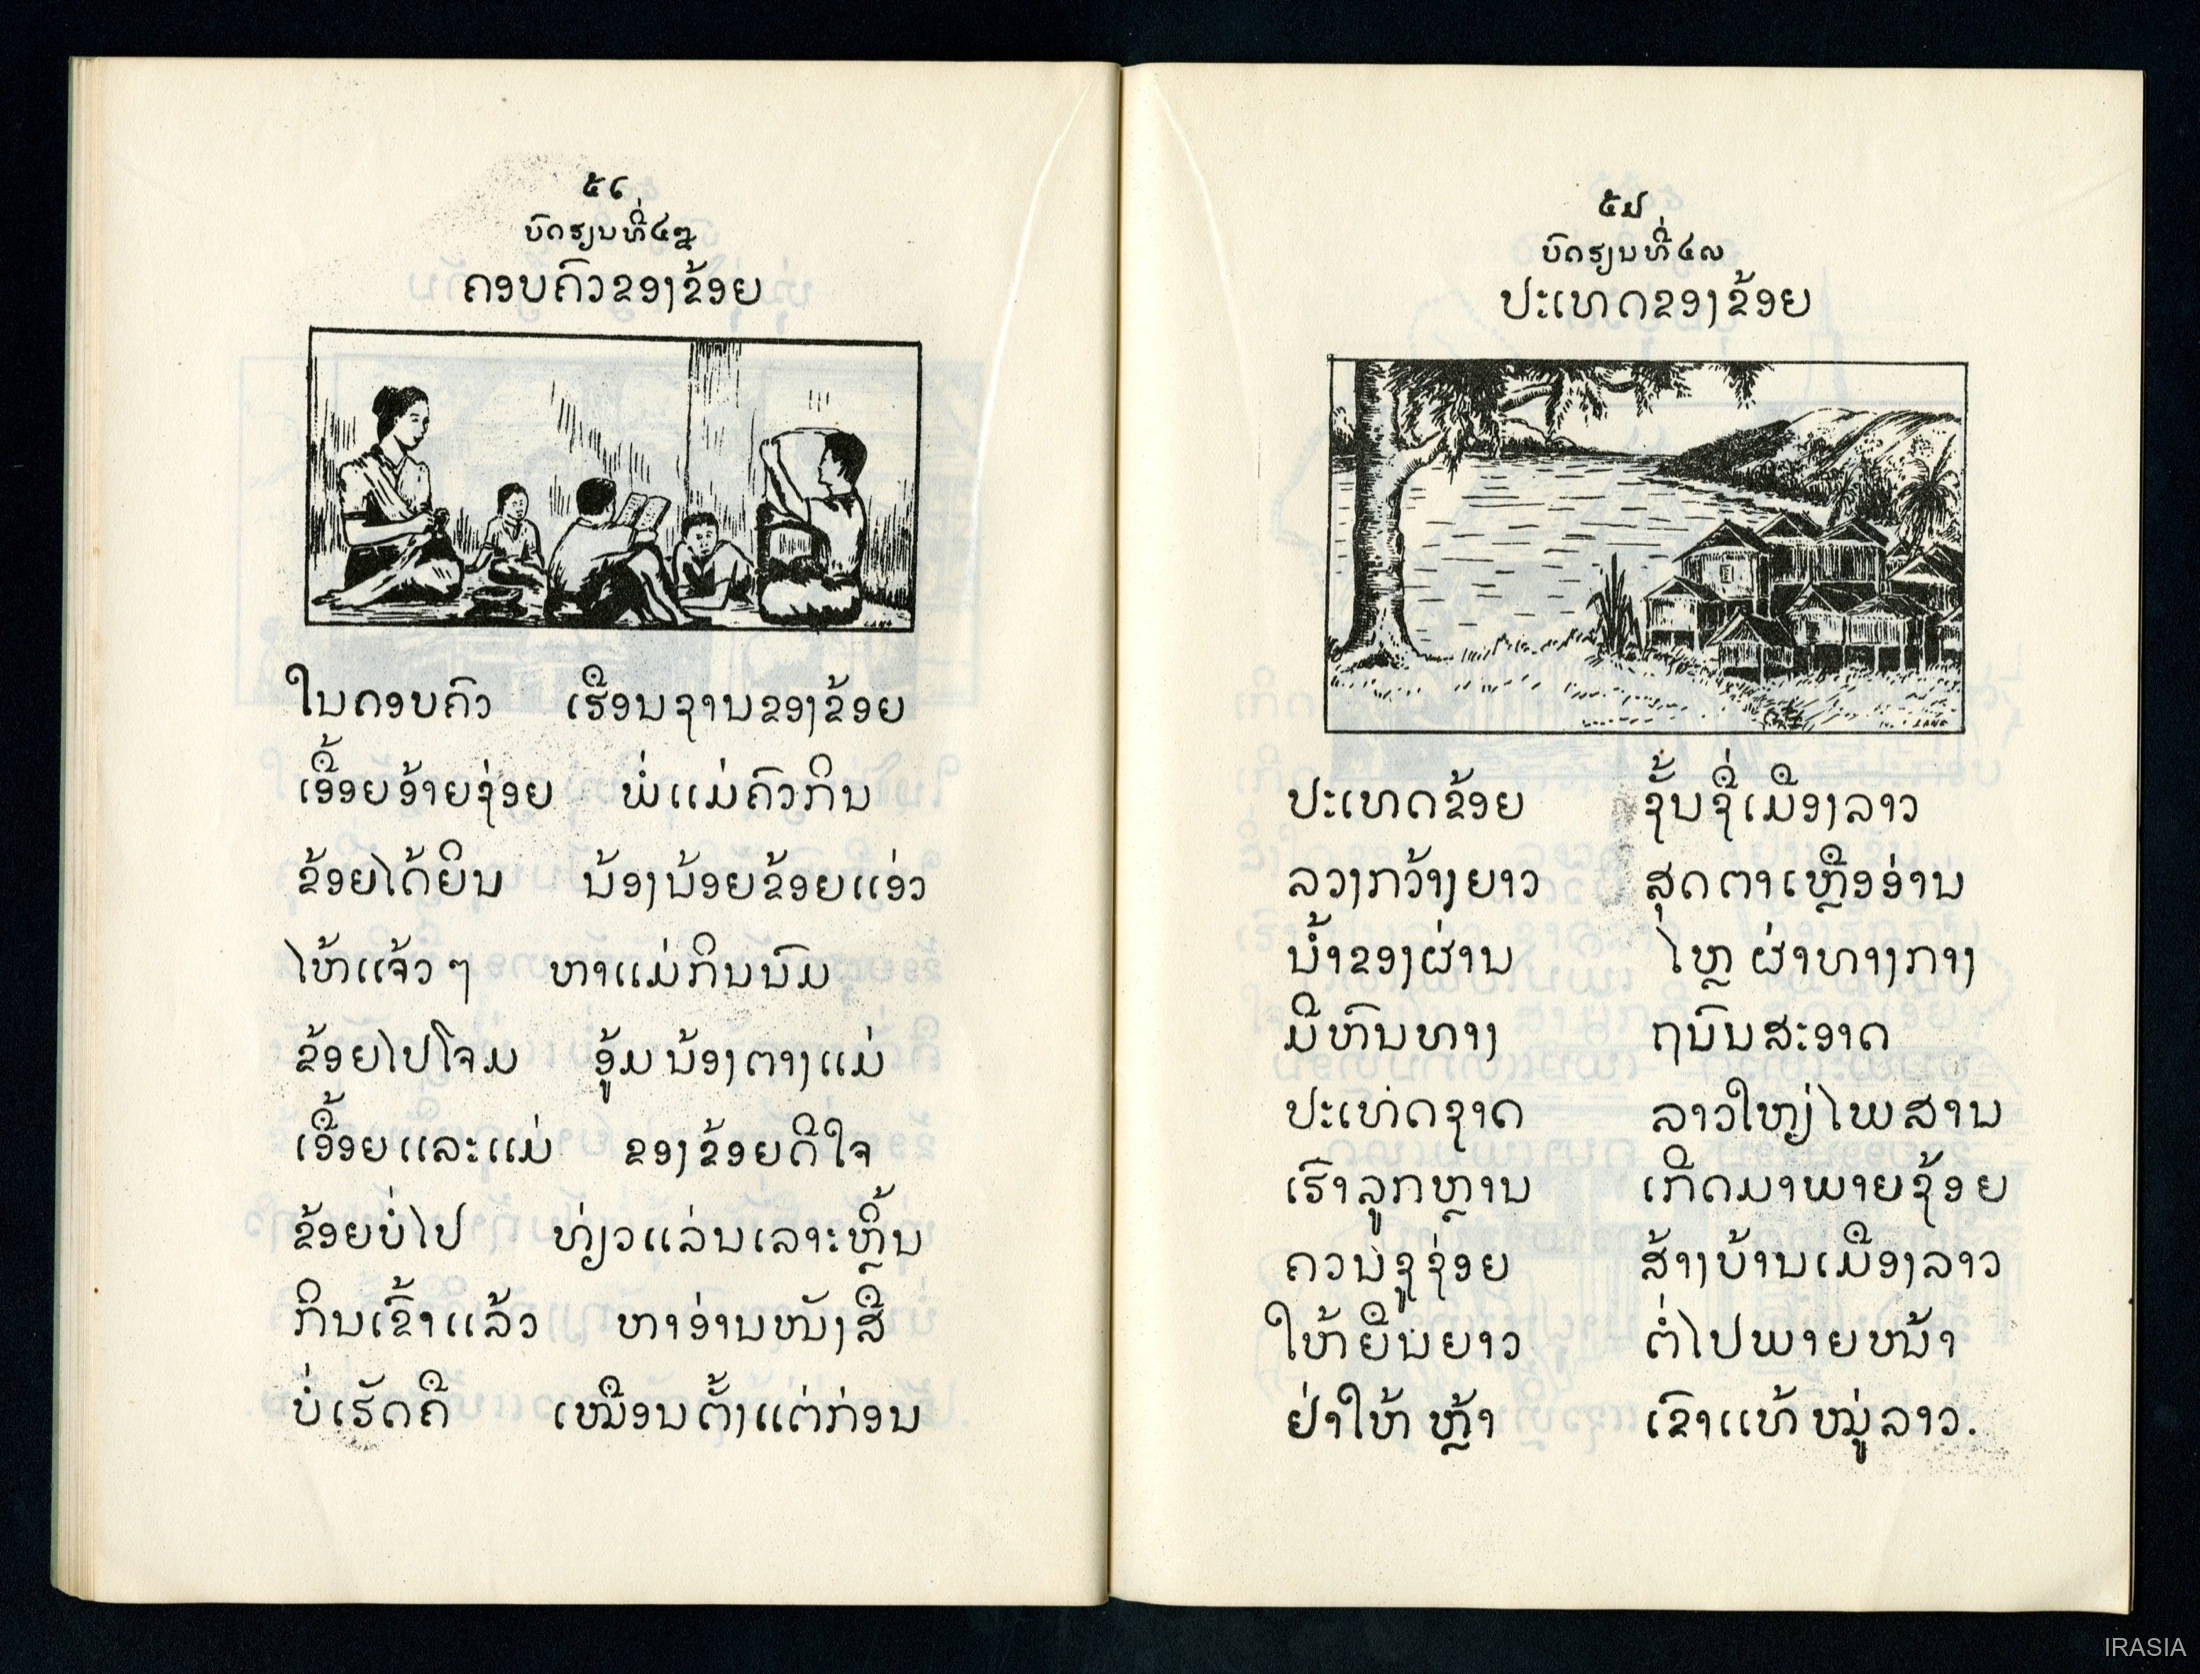 ບົດຮຽນທີ່໔໘
ຄອບຄົວຂອງຂ້ອຍ
ໃນຄອບຄົວ ເຮືອນຊານຂອງຂ້ອຍ
ເອື້ອຍອ້າຍຊ່ອຍ ພໍ່ແມ່ຄົວກິນ
ຂ້ອຍໄດ້ຍິນ ນ້ອງນ້ອຍຂ້ອຍແອ່ວ
ໄຫ້ແຈ້ວໆ ຫາແມ່ກິນນົມ
ຂ້ອຍໄປໂຈມ ອູ້ມນ້ອງຕາງແມ່
ເອື້ອຍແລະແມ່ ຂອງຂ້ອຍດີໃຈ
ຂ້ອຍບໍ່ໄປ ທ່ຽວແລ່ນເລາະຫຼິ້ນ
ກິນເຂົ້າແລ້ວ ຫາອ່ານໜັງສື
ບໍ່ເຮັດຄື ເໝືອນຕັ້ງແຕ່ກ່ອນ
ບົດຮຽນທີ່໔໙
ປະເທດຂອງຂ້ອຍ
ປະເທດຂ້ອຍ ຊັ້ນຊື່ເມືອງລາວ
ລວງກວ້າງຍາວ ສຸດຕາເຫຼືອອ່ານ
ນ້ຳຂອງຜ່ານ ໄຫຼ ຜ່າທາງກາງ
ມີຫົນທາງ ຖນົນສະອາດ
ປະເທ່ດຊາດ ລາວໃຫຽ່ໄພສານ
ເຮົາລູກຫຼານ ເກີດມາພາຍຊ້ອຍ
ຄວນຊູຊ່ອຍ ສ້າງບ້ານເມືອງລາວ
ໃຫ້ຍືນຍາວ ຕໍ່ໄປພາຍໜ້າ
ຢ່າໃຫ້ ຫຼ້າ ເຂົາແທ້ໝູ່ລາວ.
IRASIA